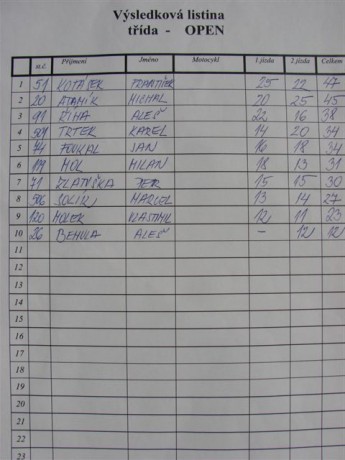 Výsledková listina
třída - OPEN
st.č. Příjmení Jméno Motocykl 1 jízda 2 jízda Celkem
1 51 KOTÁSEK FRANTIŠEK 25 22 47
2 20 ADAMÍK MICHAL 20 25 45
3 91 ŘÍHA ALEŠ 22 16 38
4 TRTEK KAREL 14 20 34
5 74 FOUKAL JAN 16 18 34
6 MOL MILAN 18 13 31
7 71 ZLATUŠKA PETR 15 15 30
8 MARCEL 13 14 27
9 120 VLASTIMIL 12 11 23
10 26 BEHULA ALEŠ - 12 12
11
12
13
14
15
16
17
18
19
20
21
22
23